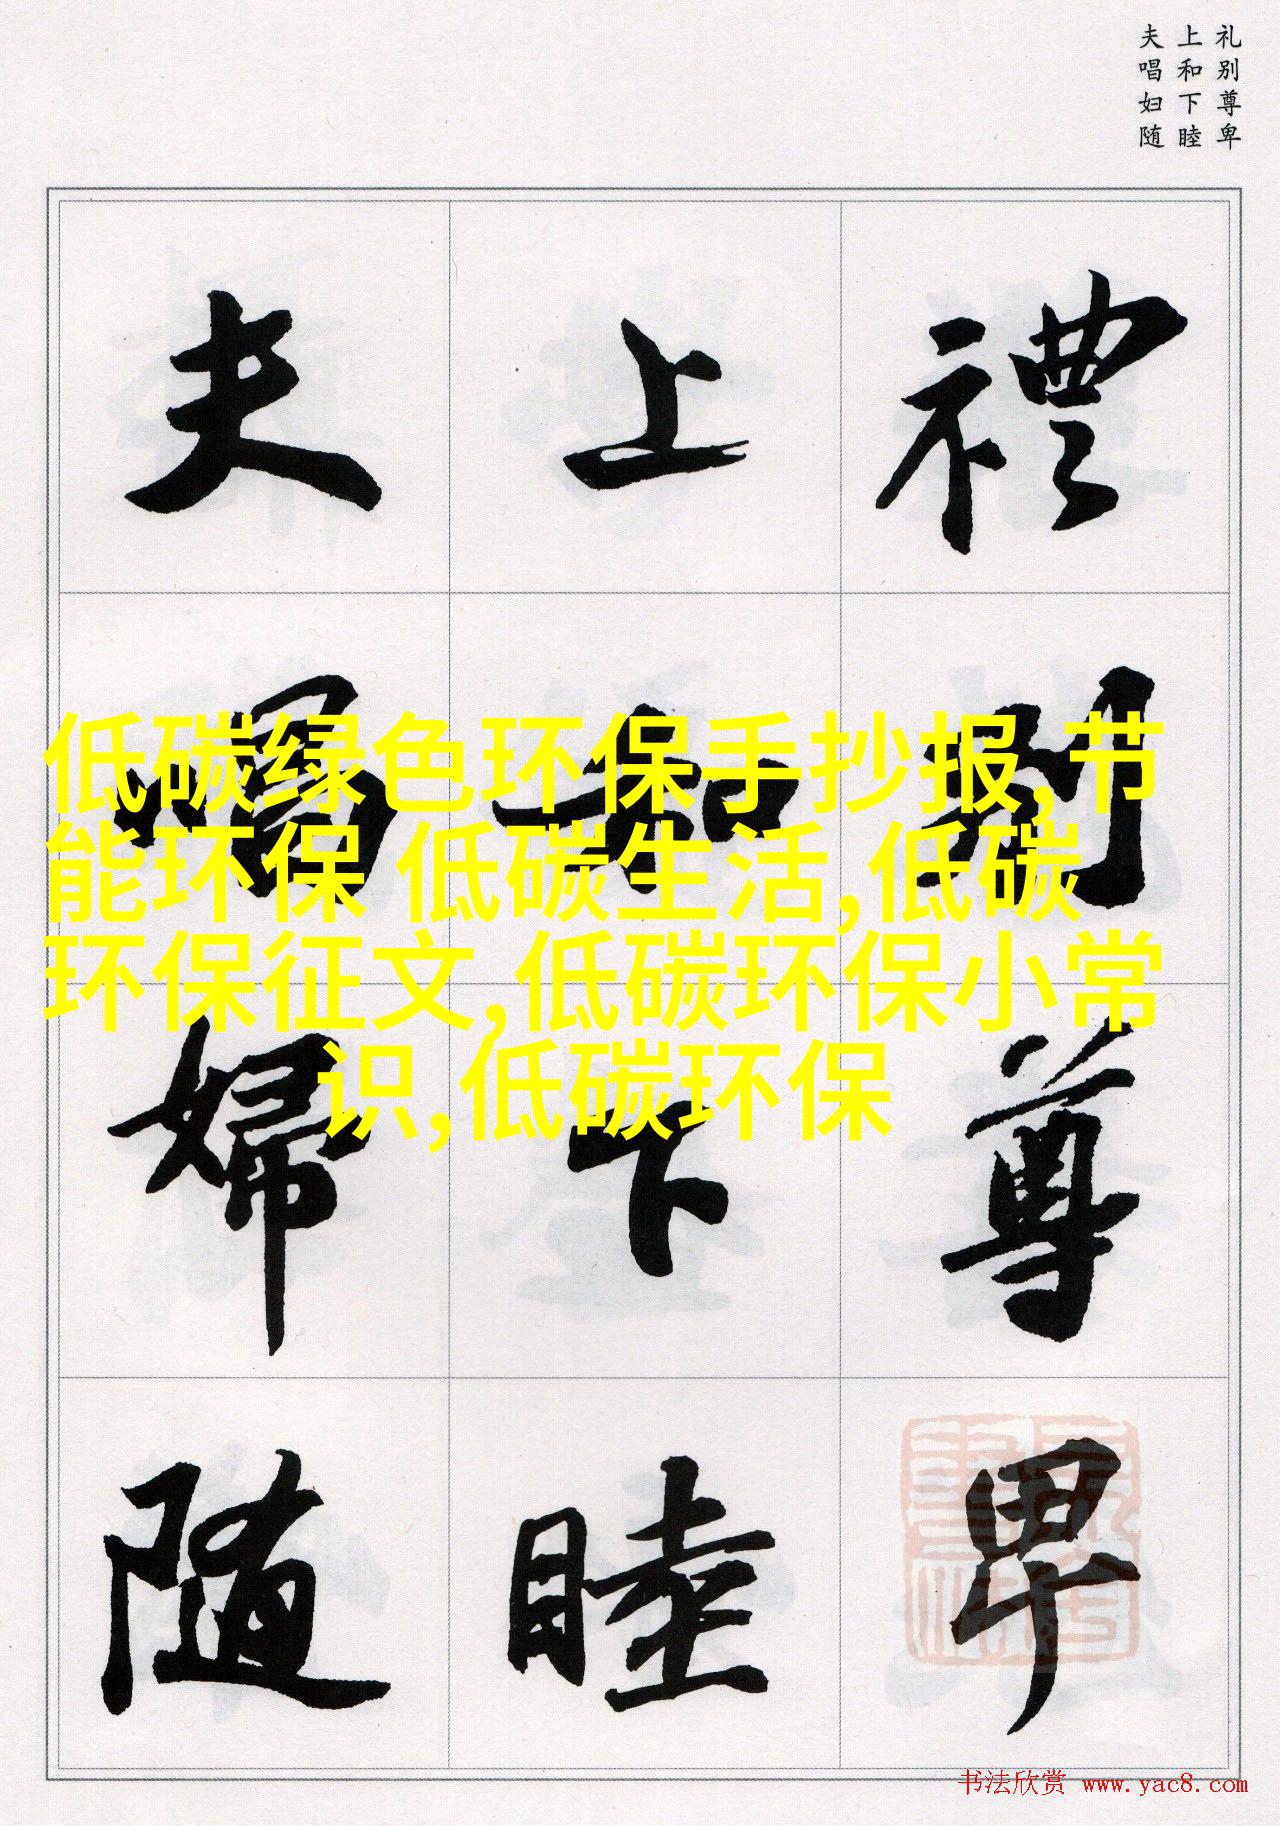 礼别尊卑
上和下睦
夫唱妇随
禮别尊卑
上和下睦
夫唱婦随
低碳绿色环保手抄报,节
能环保 低碳生活,低碳
环保征文,低碳环保小常
识,低碳环保
书法欣赏 www.yac8.com